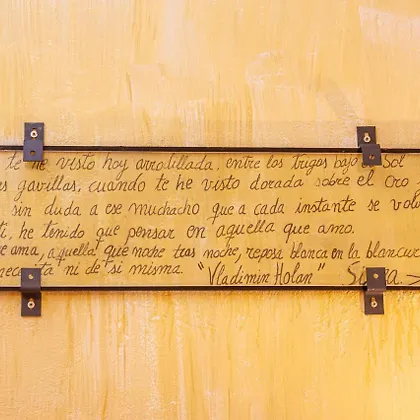 te he visto hoy arrodillada, entre los trigos bajo el Sol
s gavillas, cuando te he visto dorada sobre el oro
sin duda a ese muchacho que a cada instante se vol
ti, he tenido que pensar en aquella que amo.
e ama, aquella que noche tras noche, reposa blanca en la blancur
necesita ni de si misma. "Vladimin Holan"